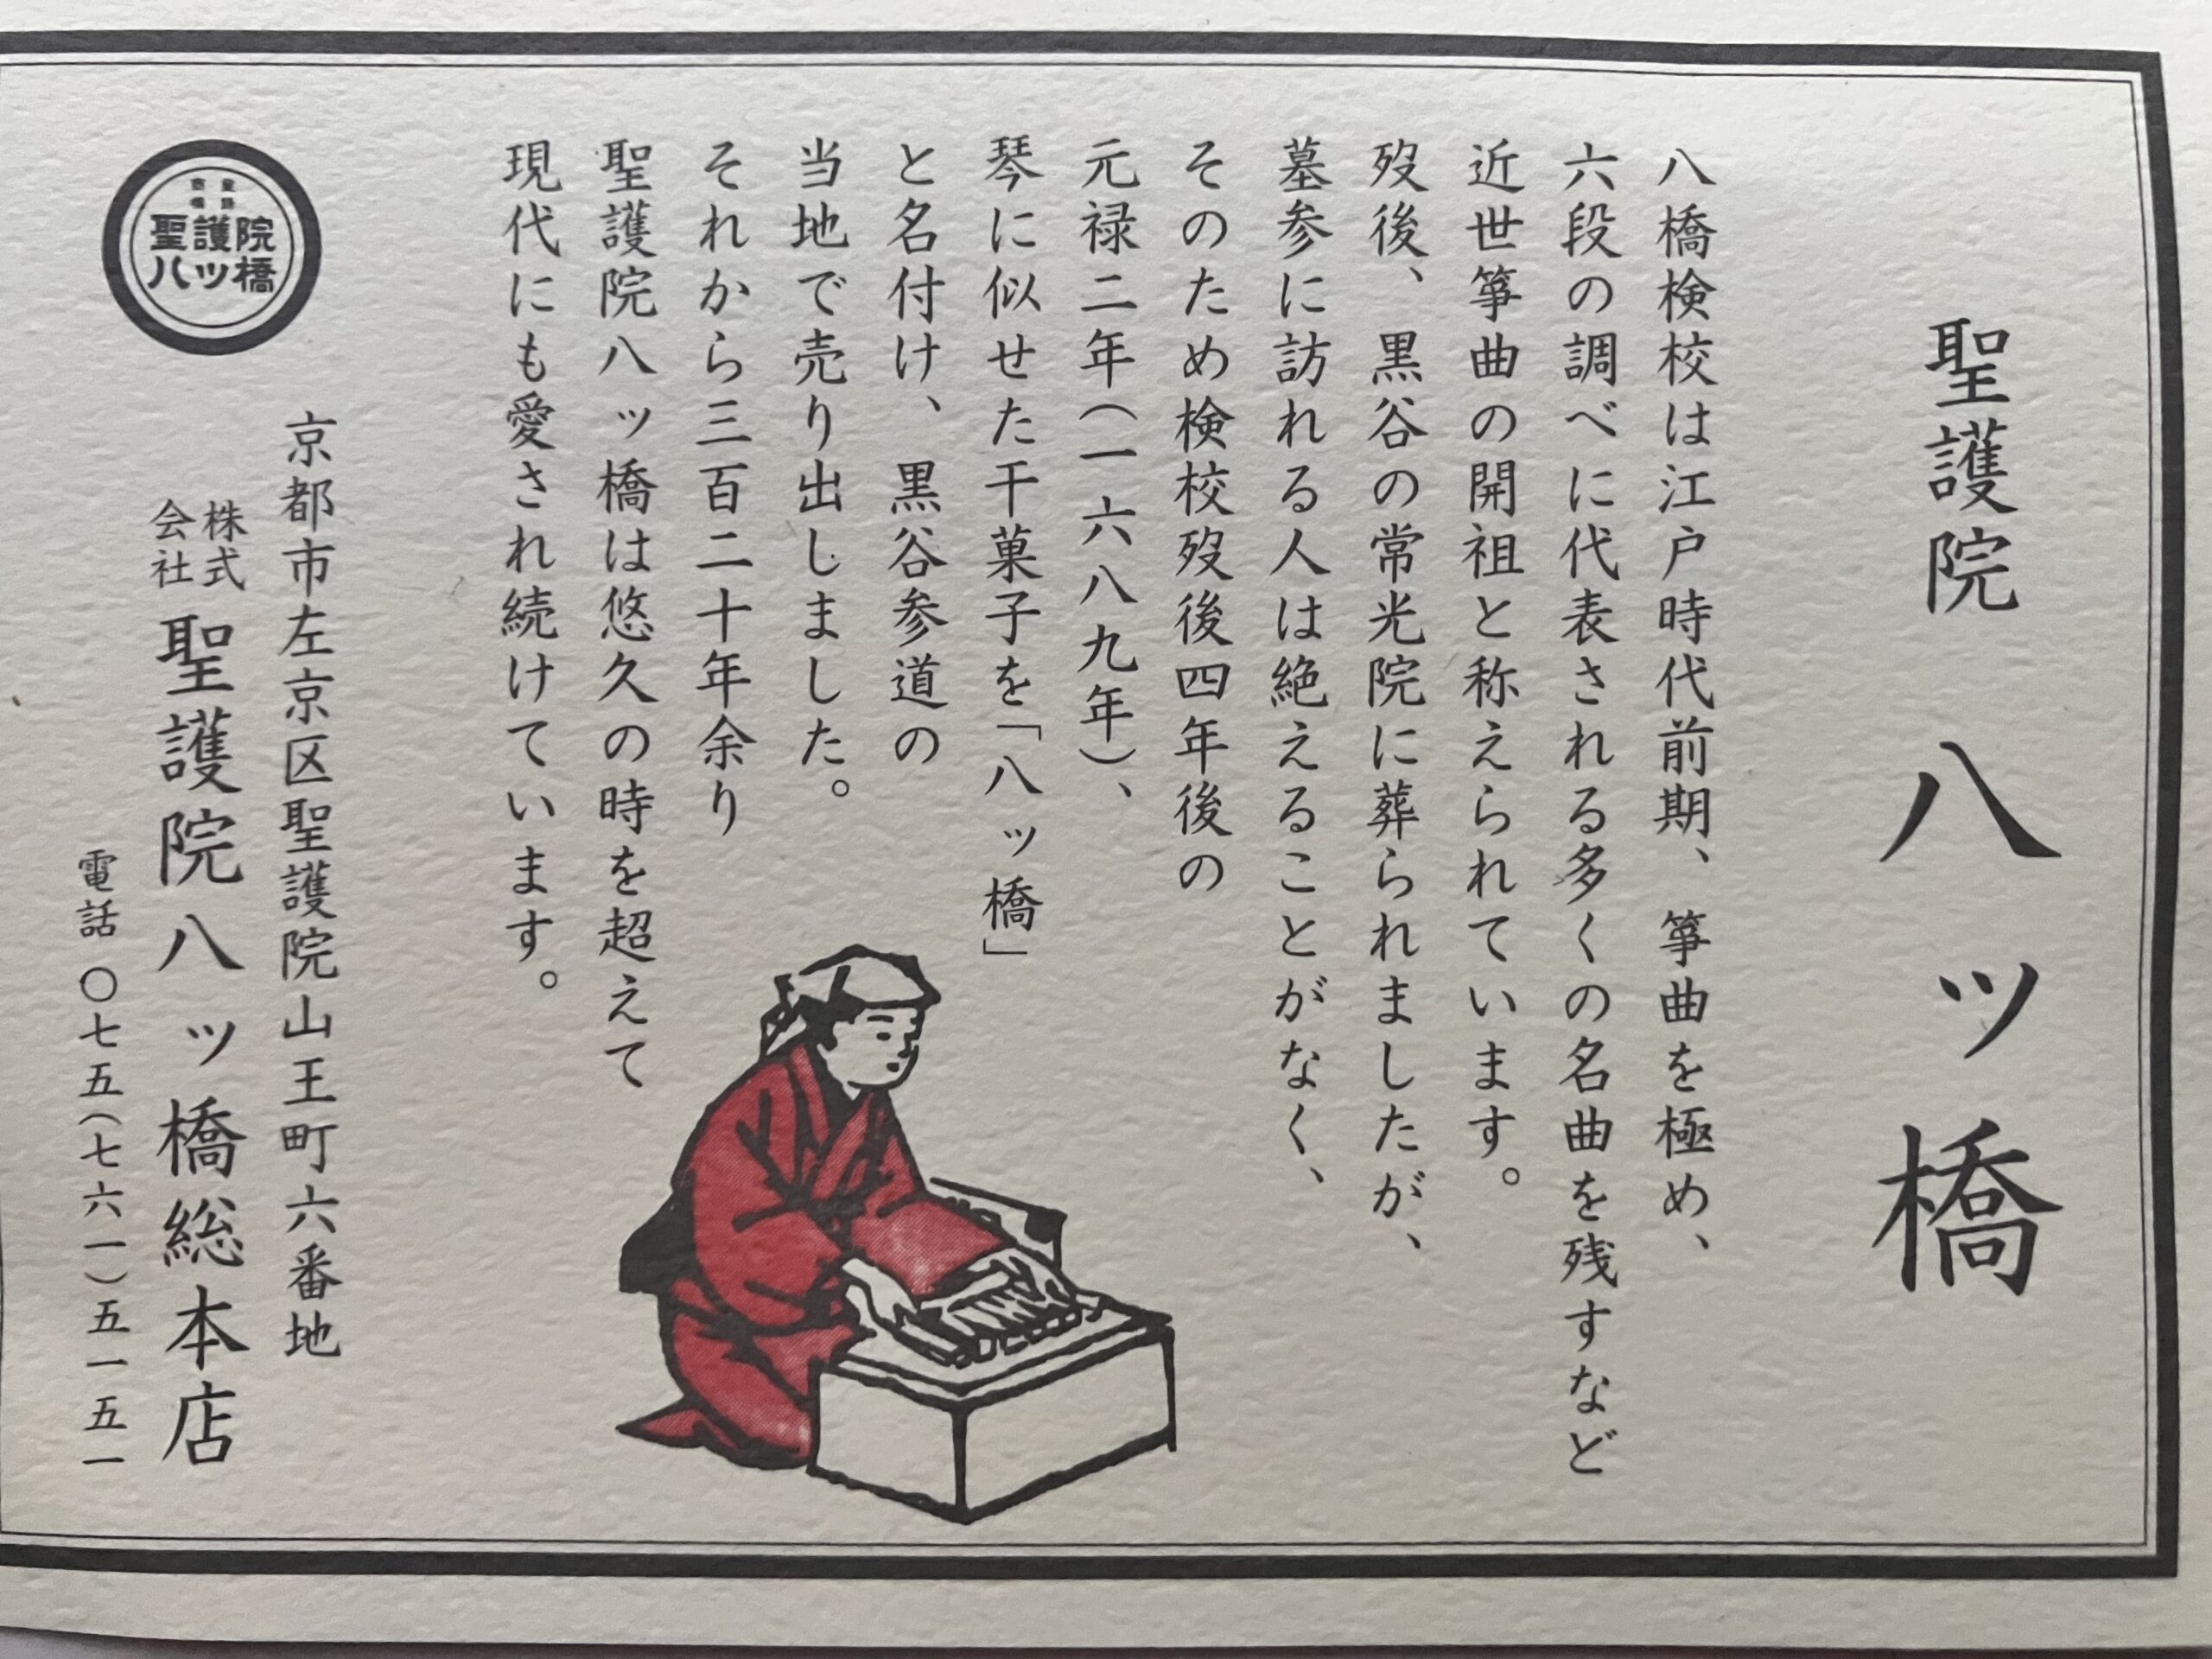 聖護院 八ッ橋
八橋検校は江戸時代前期、箏曲を極め、
六段の調べに代表される多くの名曲を残すなど
近世箏曲の開祖と称えられています。
歿後、黒谷の常光院に葬られましたが、
墓参に訪れる人は絶えることがなく、
そのため検校歿後四年後の
元禄二年(一六八九年)、
琴に似せた干菓子を「八ッ橋」
と名付け、黒谷参道の
当地で売り出しました。
それから三百二十年余り
聖護院八ッ橋は悠久の時を超えて
現代にも愛され続けています。
聖護院
八ッ橋
京都市左京区聖護院山王町六番地
株式会社 聖護院八ッ橋総本店
電話 〇七五(七六一)五一五一